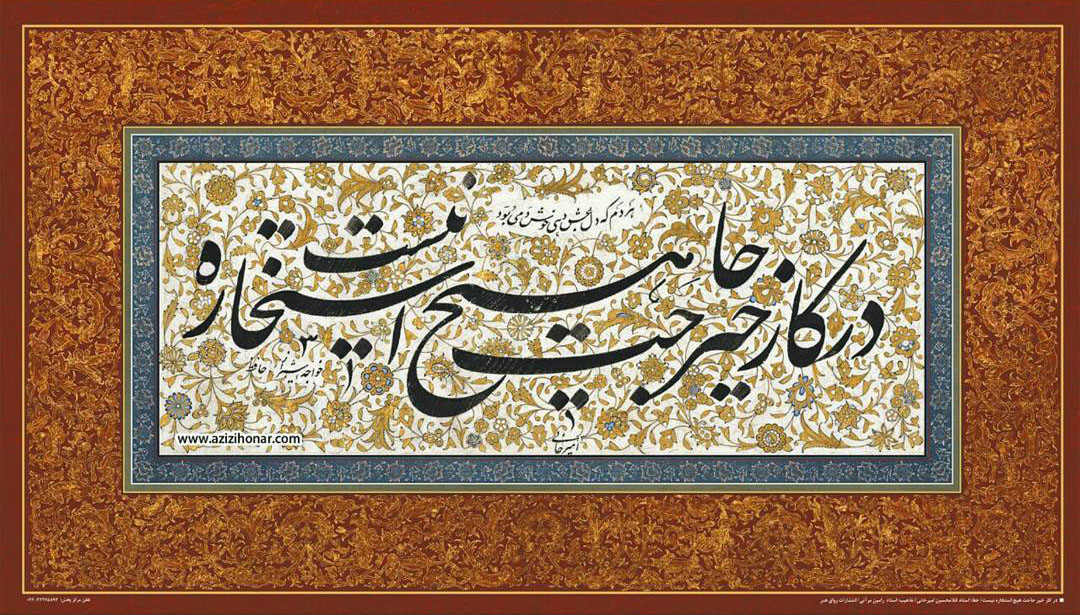 هر دم که دل به عشق دهی خوش دمی بود
در کار خیر حاجت هیچ استخاره نیست
خواجه حافظ شیراز
امیرخانی
www.azizihonar.com
در کار خیر حاجت هیچ استخاره نیست/ خط: استاد غلامحسین امیرخانی/ تذهیب: استاد رامین مرآتی/ انتشارات روای هنر
تلفن مرکز پخش: